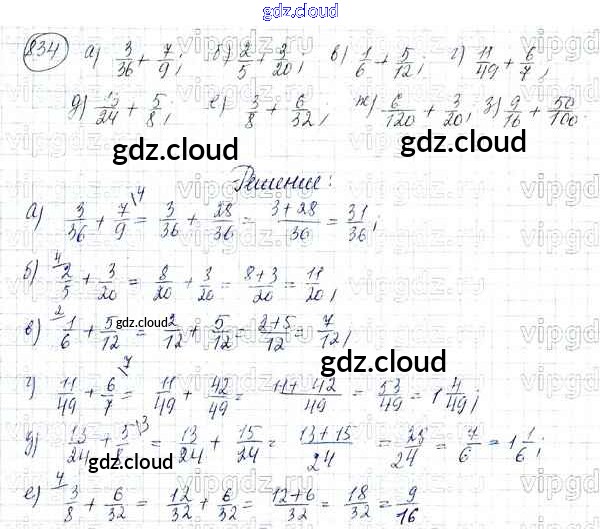 gdz.cloud
834 а) 3/36 + 7/9; б) 2/5 + 3/20; в) 1/6 + 5/12; г) 11/49 + 6/7;
д) 13/24 + 5/8; е) 3/8 + 6/32; ж) 6/120 + 3/20; з) 9/16 + 50/100.
gdz.cloud gdz.cloud
Решение:
а) 3/36 + 7/9 \4 = 3/36 + 28/36 = 3+28/36 = 31/36;
gdz.cloud
б) 4/ 2/5 + 3/20 = 8/20 + 3/20 = 8+3/20 = 11/20;
в) 2/ 1/6 + 5/12 = 2/12 + 5/12 = 2+5/12 = 7/12;
gdz.cloud
gdz.cloud
г) 11/49 + 6/7 \7 = 11/49 + 42/49 = 11+42/49 = 53/49 = 1 4/49;
д) 13/24 + 5/8 \3 = 13/24 + 15/24 = 13+15/24 = 28/24 = 7/6 = 1 1/6;
gdz.cloud
е) 4/ 3/8 + 6/32 = 12/32 + 6/32 = 12+6/32 = 18/32 = 9/16